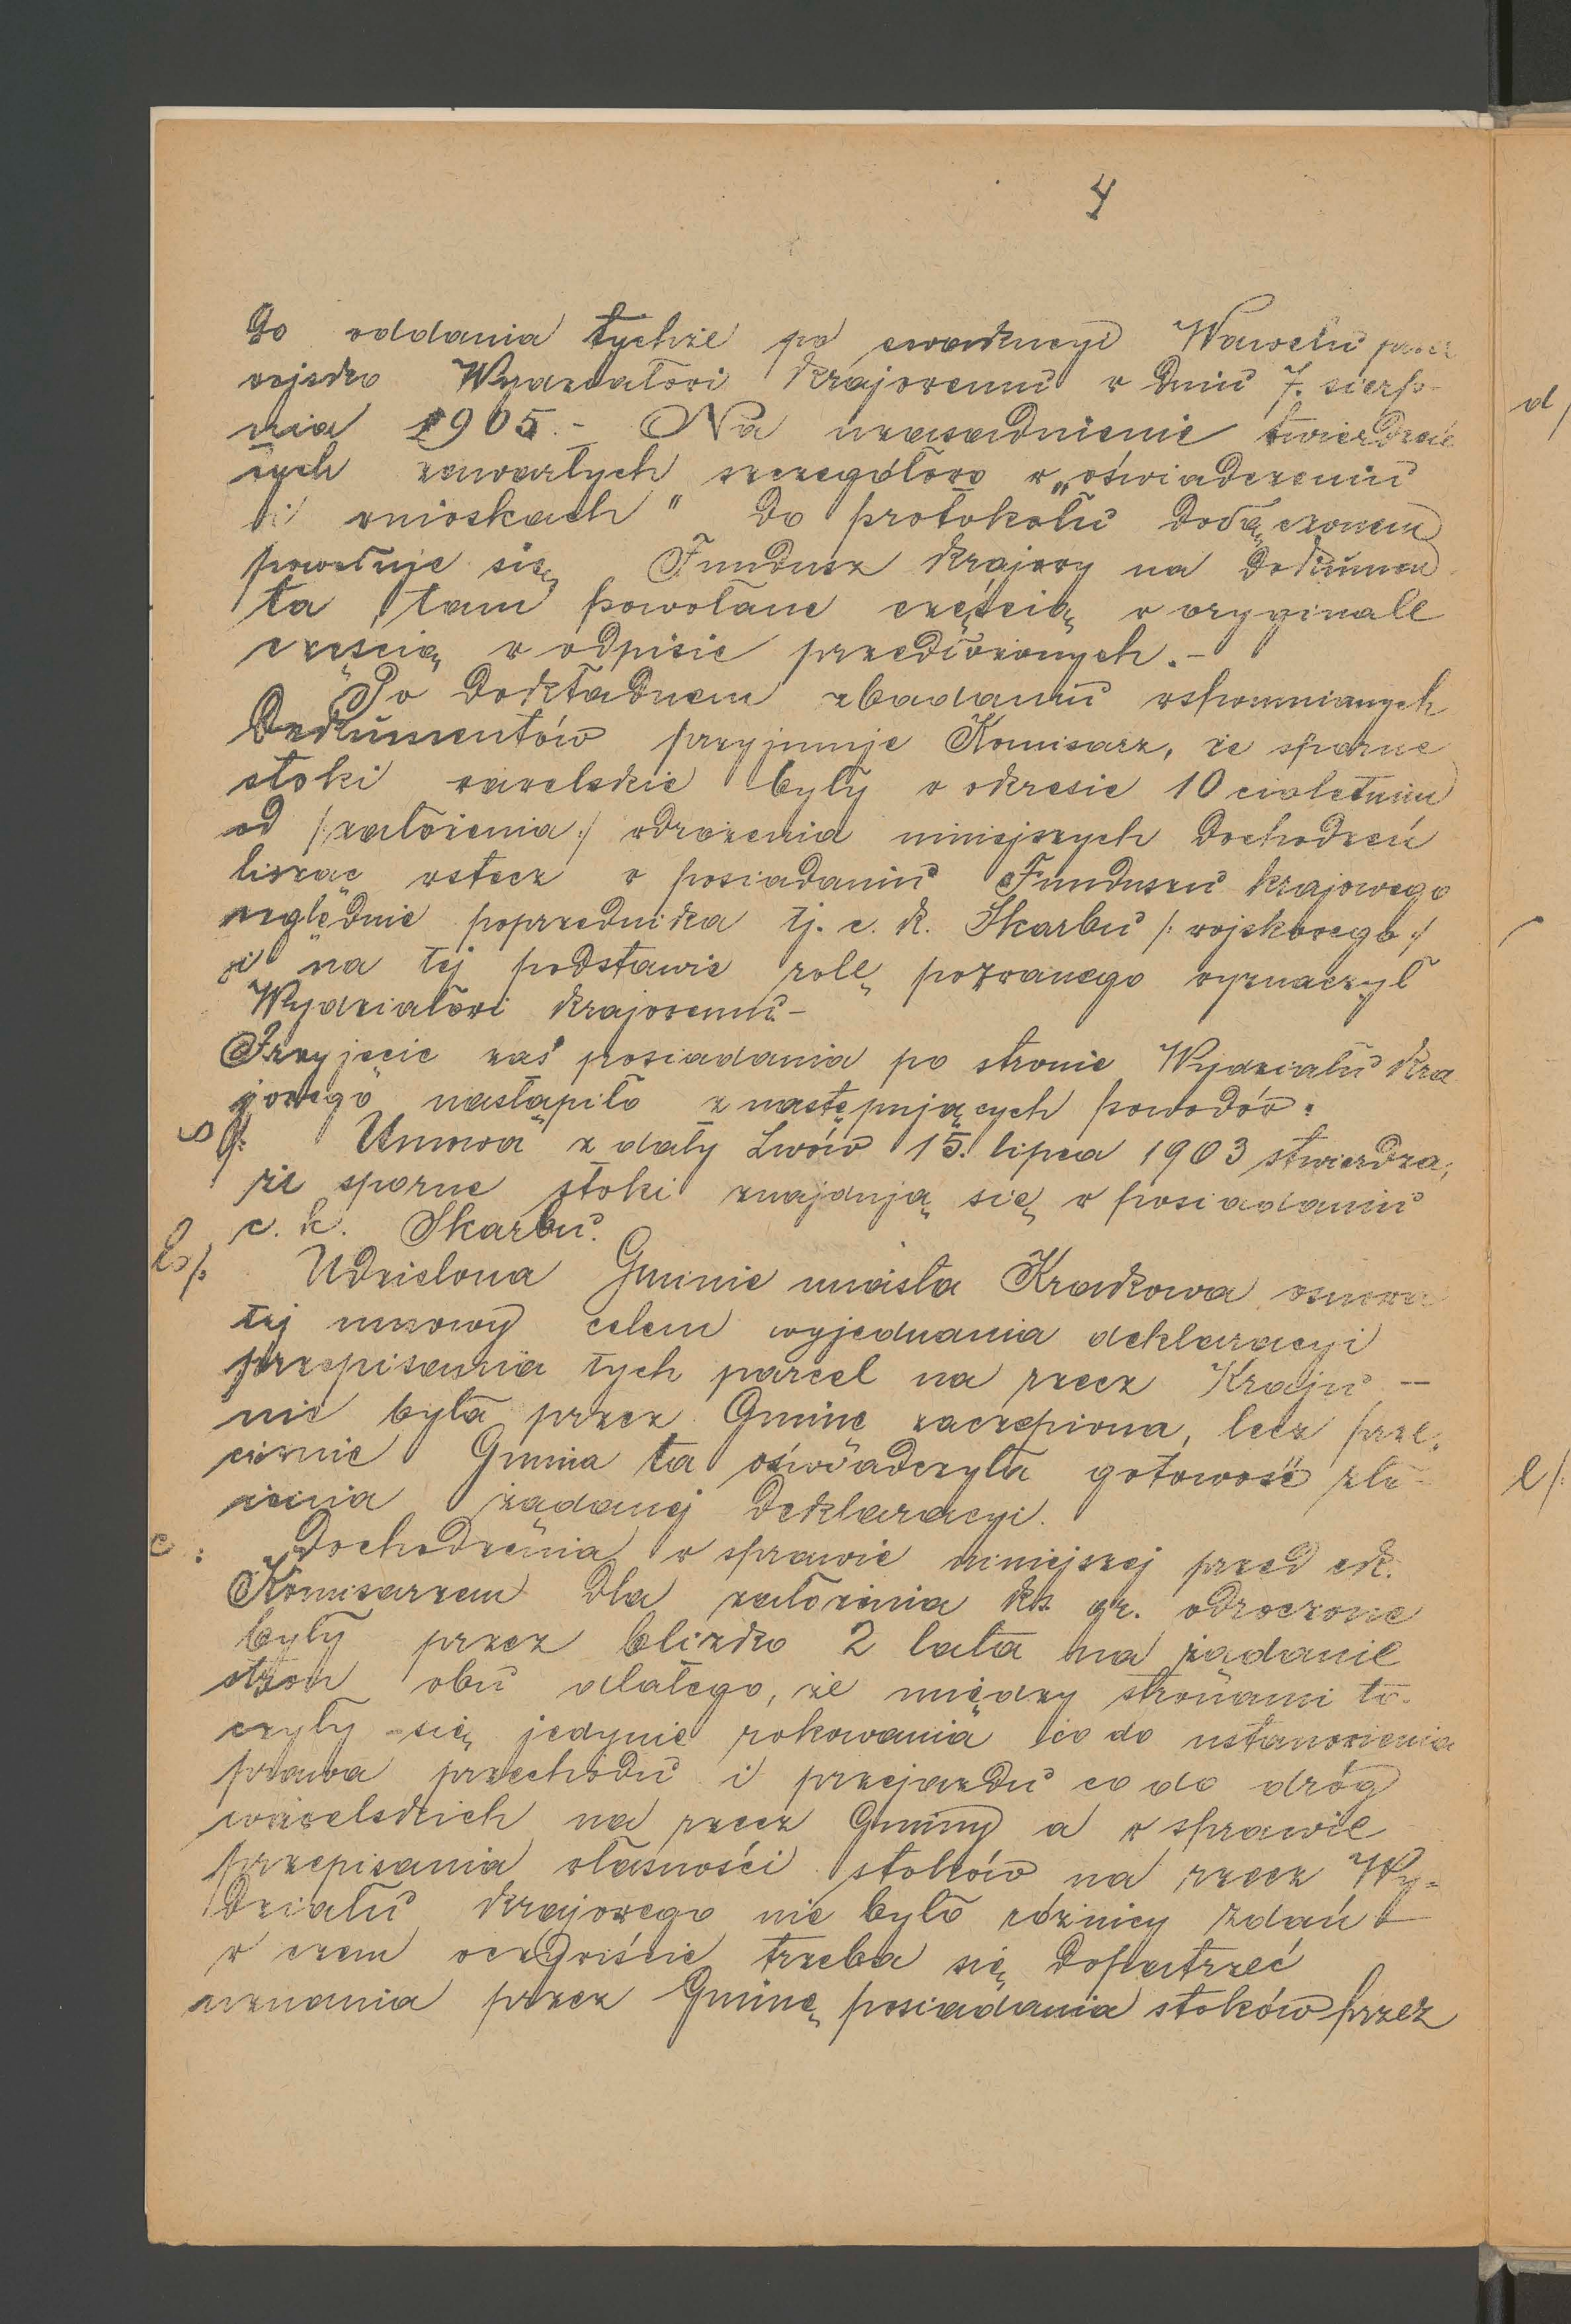 4
do oddania tychże po ewakucyi Wawelu przez
wojsko Wydziałowi krajowemu w dniu 7. sierp-
nia 1905.- Na uzasadnienie twierdzeń
tych zawartych szczegółowo w „oświadczeniu
i wnioskach" do protokołu dołączonem
powołuje się Fundusz krajowy na dokumen
ta tam powołane częścią w oryginale
częścią w odpisie przedłożonych.-
Po dokładnem zbadaniu wspomnianych
Dokumentów przyjmuje Komisarz, że sporne
stoki wawelskie były w okresie 10 cioletnim
od /:założenia:/ wdrożenia niniejszych dochodzeń
licząc wstecz w posiadaniu Funduszu krajowego
względnie poprzednika tj. c. k. Skarbu /:wojskowego:/
i na tej podstawie rolę pozwanego wyznaczył
Wydziałowi krajowemu-
Przyjęcie zaś posiadania po stronie Wydziału kra
jowego nastąpiło z następujących powodów:
Umowa z daty Lwów 15. lipca 1903 stwierdza,
że sporne stoki znajdują się w posiadaniu
c. k. Skarbu.
b/: Udzielona Gminie miasta Krakowa osnowa
tej umowy celem wyjednania deklaracyi
przepisania tych parcel na rzecz Kraju —
nie była przez Gminę zaczepiona, lecz prze-
ciwnie Gmina ta oświadczyła gotowość zło-
żenia żądanej deklaracyi.
c: Dochodzenia w sprawie niniejszej przed ck.
Komisarzem dla założenia ks. gr. odroczone
były przez blizko 2 lata na żądanie
stron obu dlatego, że między stronami to-
czyły się jedynie rokowania co do ustanowienia
prawa przechodu i przejazdu co do dróg
wawelskich na rzecz Gminy a w sprawie
przepisania własności stoków na rzecz Wy-
działu krajowego nie było różnicy zdań —
w czem oczywiście trzeba się dopatrzeć
uznania przez Gminę posiadania stoków przez
d/
e/: